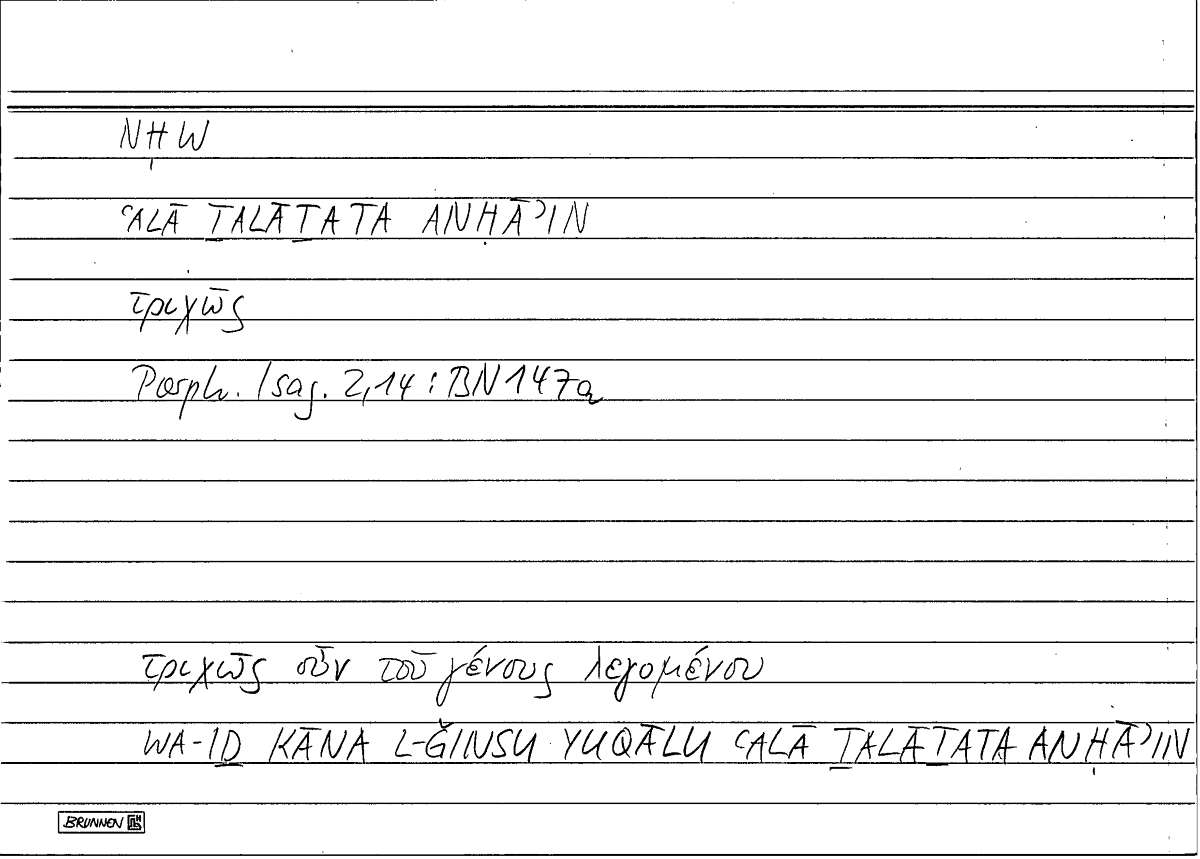 NḤW
ʿALĀ ṮALĀṮATA ANḤĀʾIN
τριχῶς
Porph. Isag. 2,14 : BN 147a
τριχῶς οὖν τοῦ γένους λεγομένου
WA-IḎ KĀNA L-ǦINSU YUQĀLU ʿALĀ ṮALĀṮATA ANḤĀʾIN
BRUNNEN